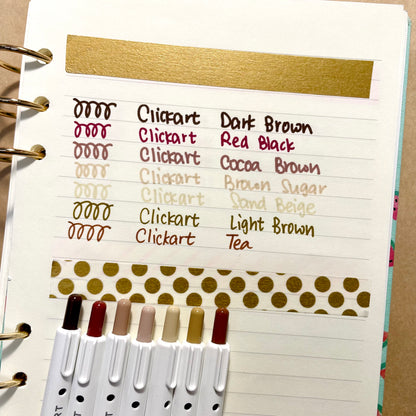 Clickart Dark Brown
Clickart Red Black
Clickart Cocoa Brown
Clickart Brown Sugar
Clickart Sand Beige
Clickart Light Brown
Clickart Tea